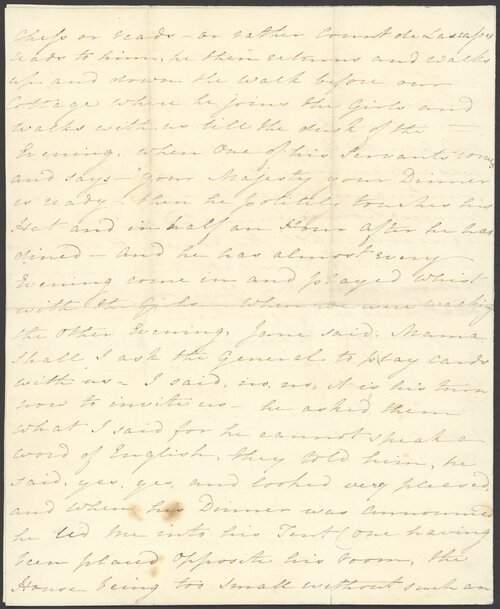 Chess or reads - or rather Count de Lascasses
reads to him, he then returns and walks
up and down the walk before our
Cottage where he joins the Girls and
walks with us till the dusk of the
Evening, when One of his Servants comes
and says - your Majesty your Dinner
is ready - then he politely touches his
Hat and in half an Hour after he has
dined - and he has almost every
Evening come in and played Whist
with the Girls. When we were walking
the other Evening, Jane said, Mama
shall I ask the General to play cards
with us - I said, no, no, it is his turn
now to invite us - he asked them
what I said for he cannot speak a
word of English, they told him, he
said, yes, yes, and looked very pleased,
and when his Dinner was announced
he led me into his Tent (one having
been placed opposite his room, the
House being too small without such an